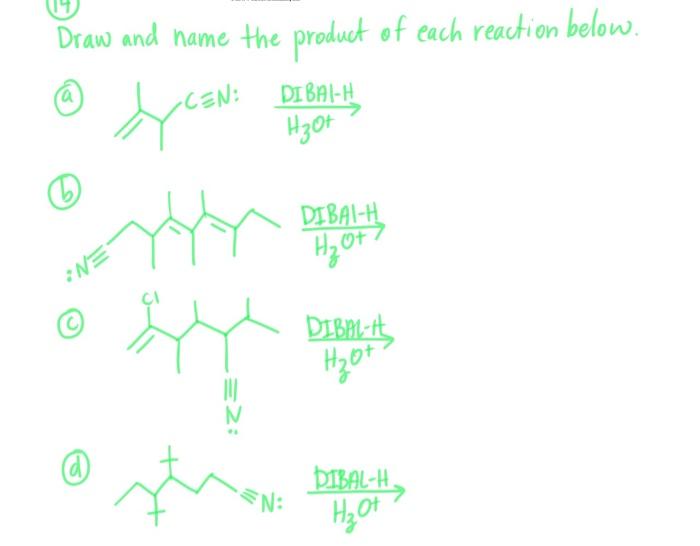 14
Draw and name the product of each reaction below.
a
C≡N:
DIBAl-H
H3O+
b
:N≡
DIBAl-H
H3O+
c
Cl
N
..
DIBAL-H
H3O+
d
≡N:
DIBAL-H
H3O+